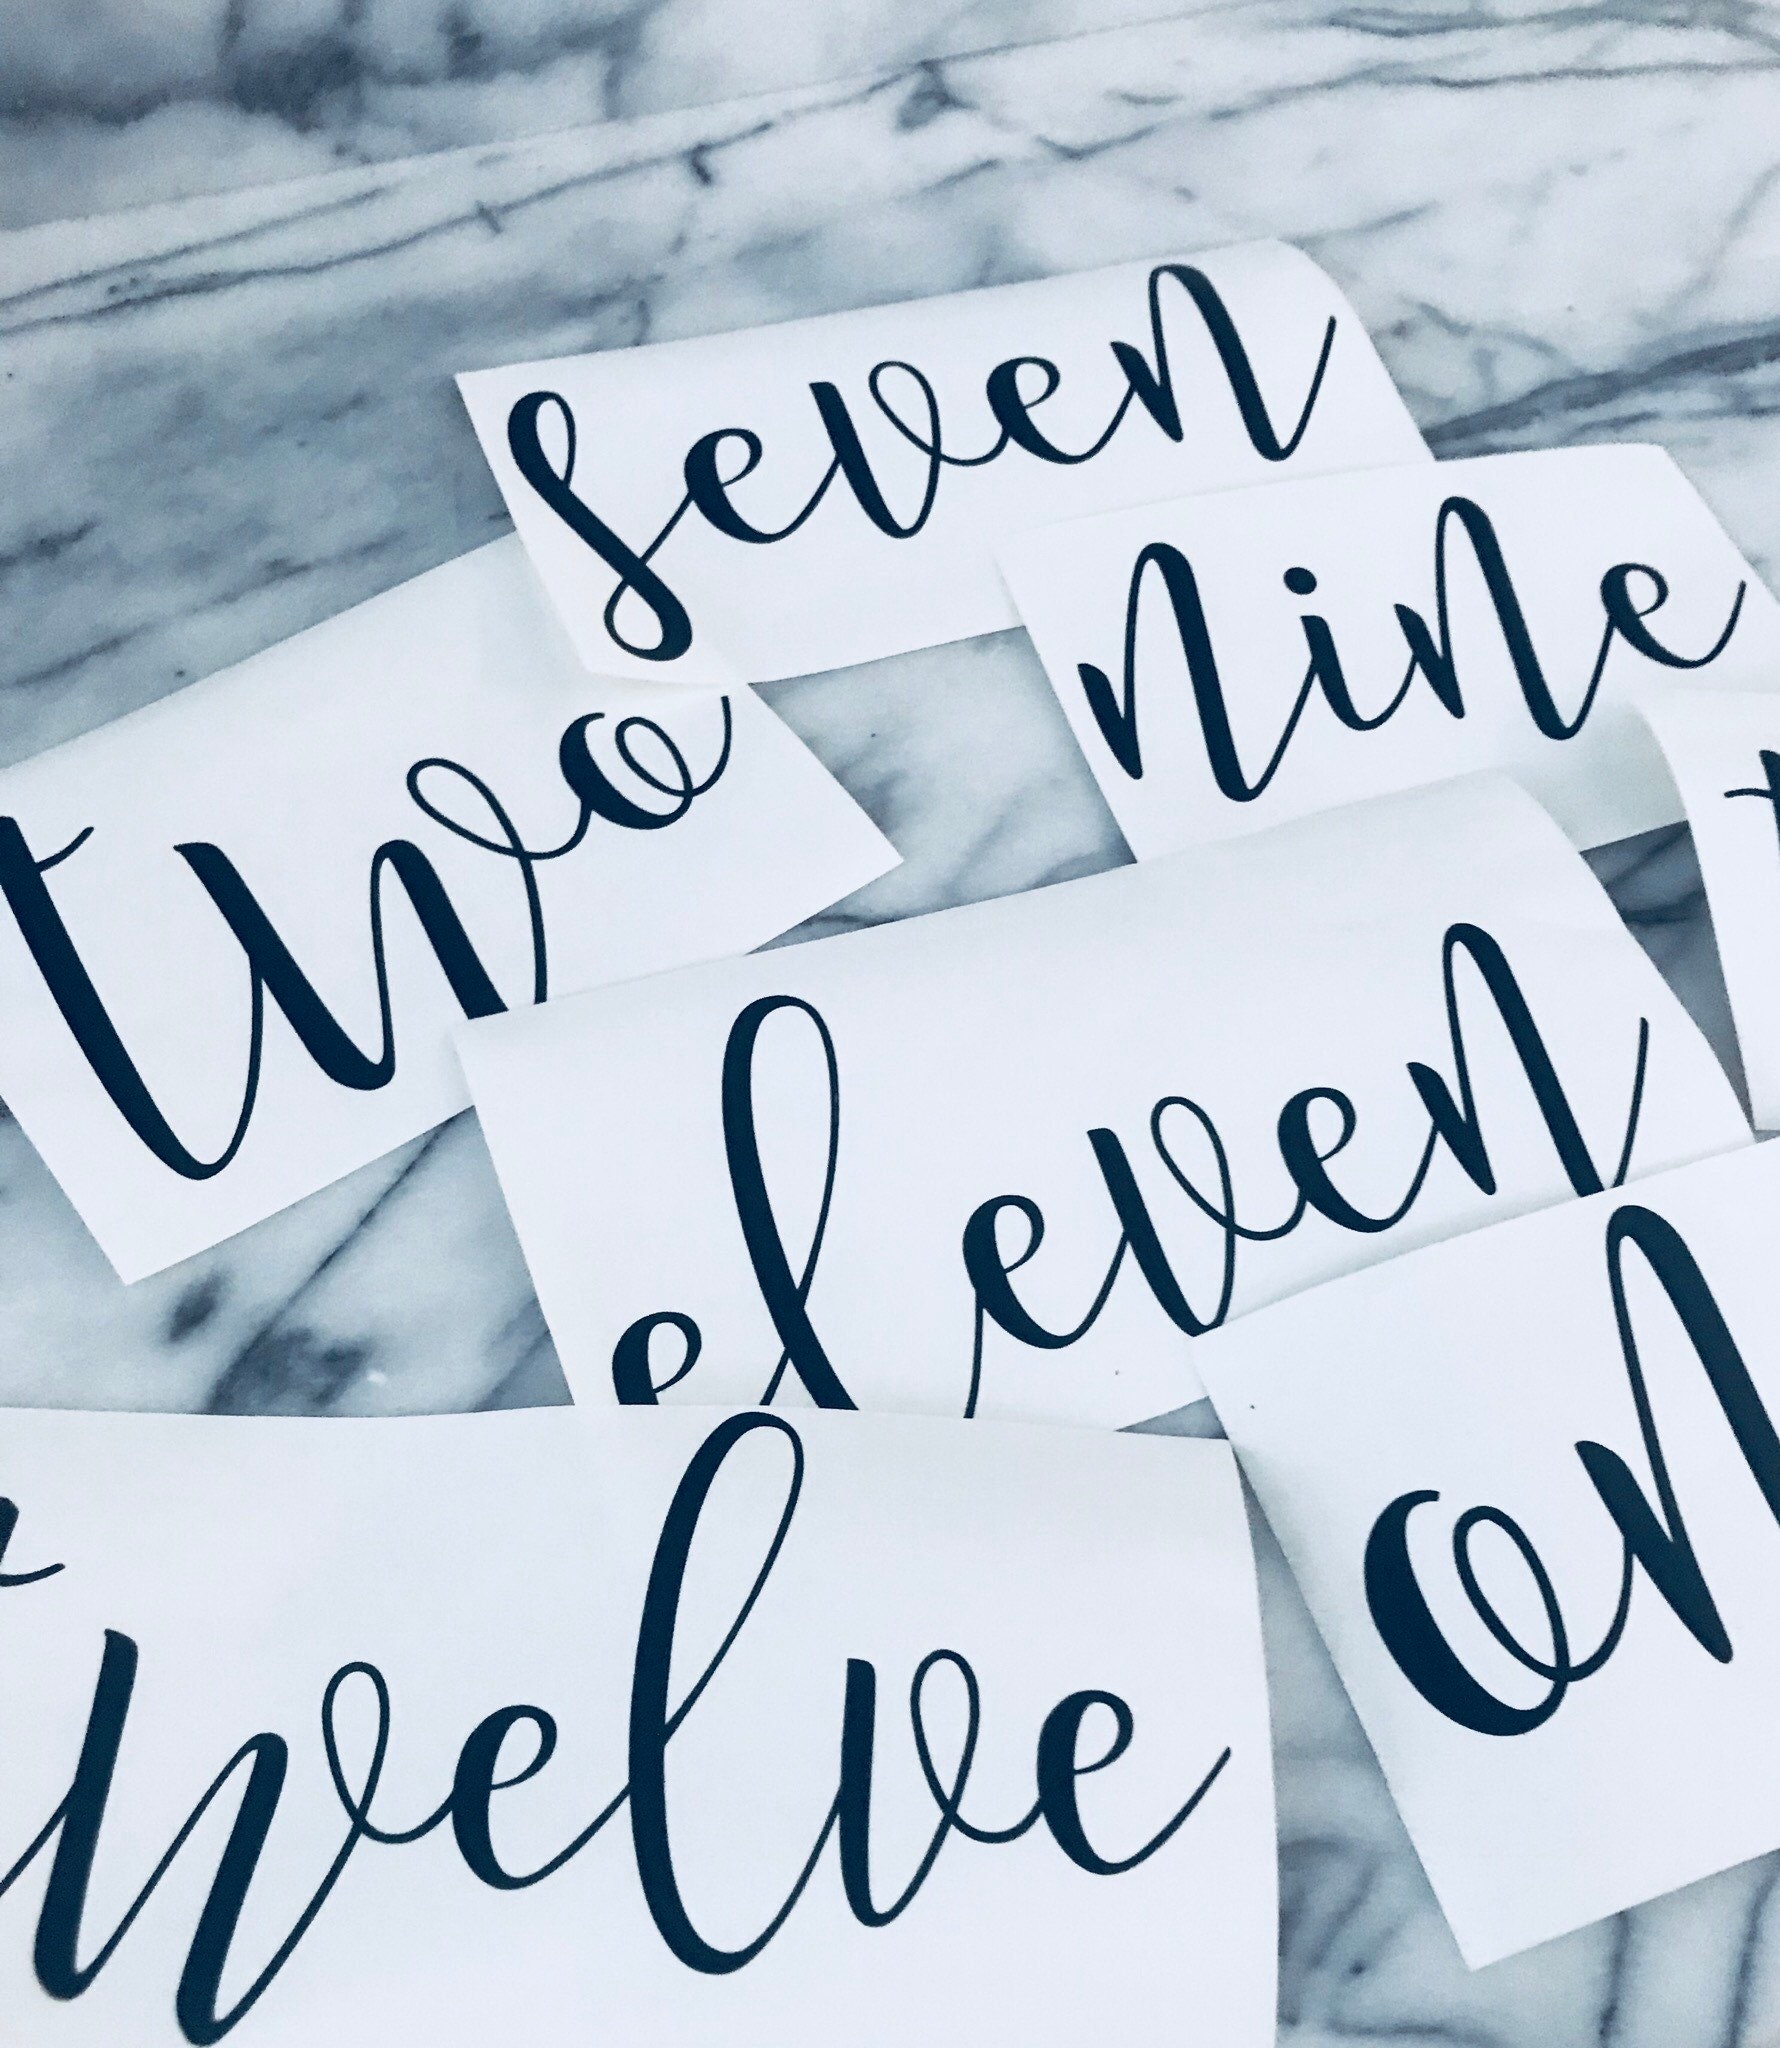 seven
nine
two
t
eleven
on
welve